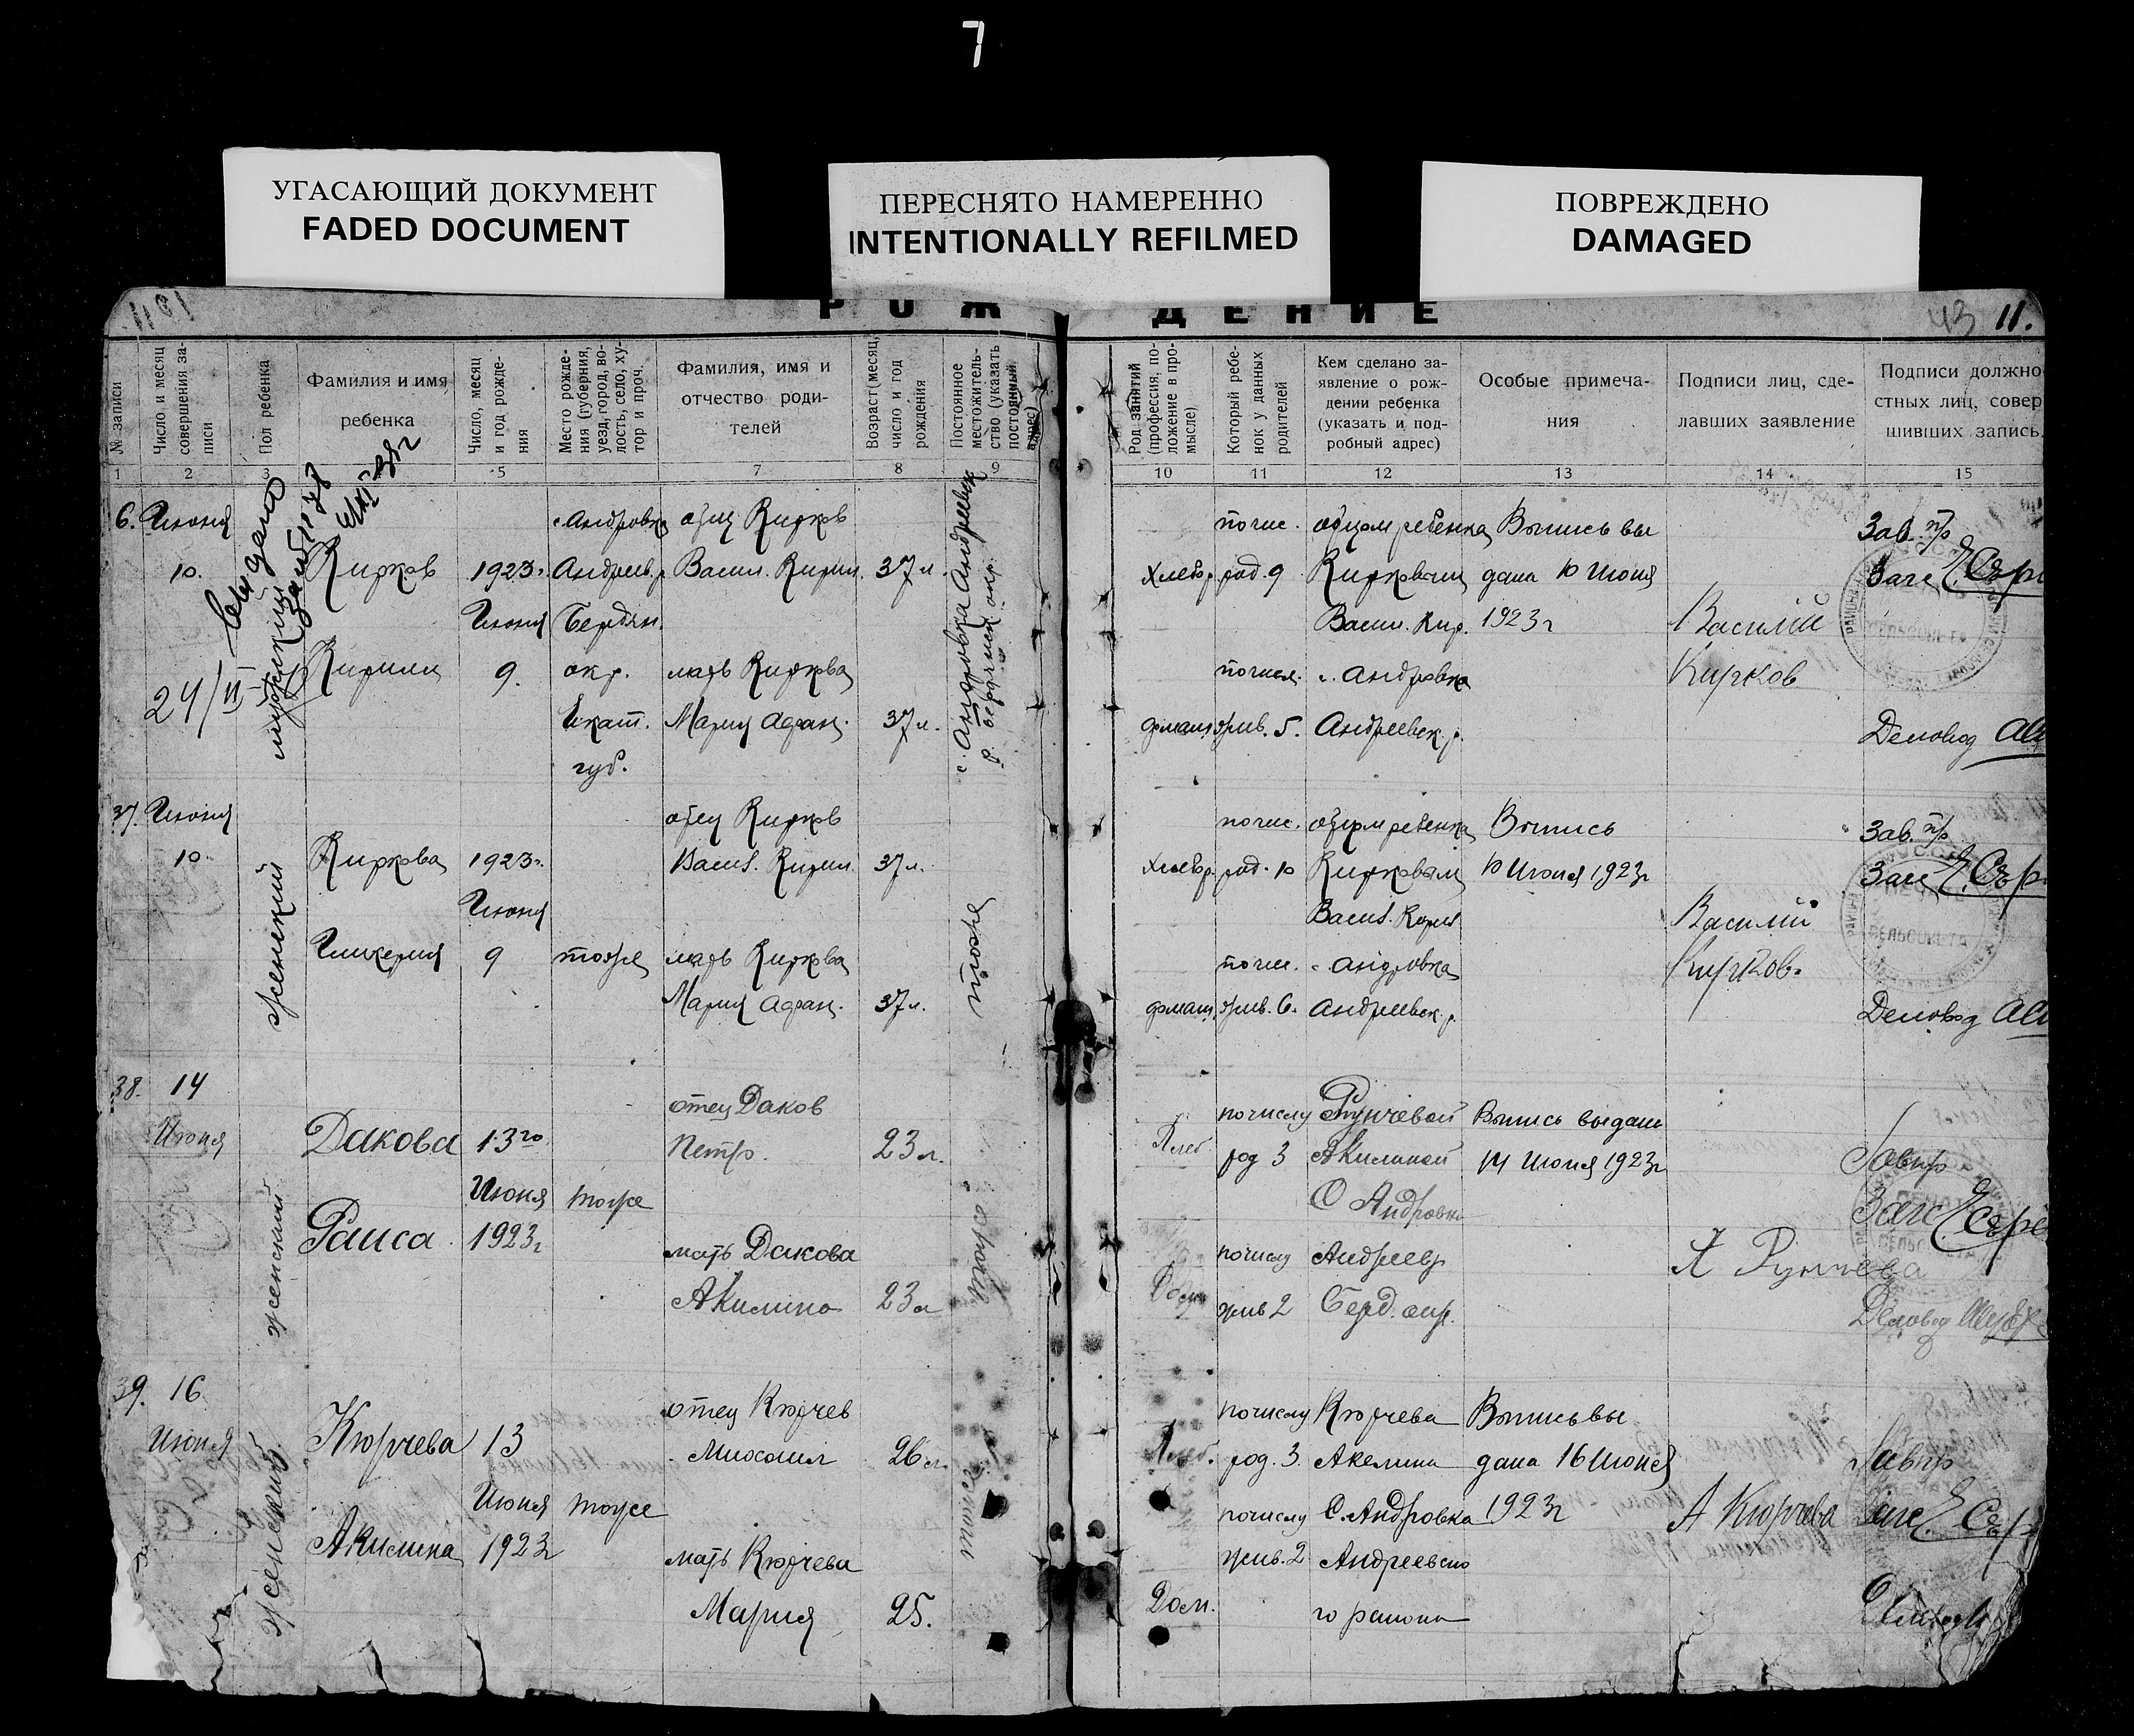 7
УГАСАЮЩИЙ ДОКУМЕНТ
FADED DOCUMENT
ПЕРЕСНЯТО НАМЕРЕННО
INTENTIONALLY REFILMED
ПОВРЕЖДЕНО
DAMAGED
РОЖДЕНИЕ
43 11.
№ записи
Число и месяц совершения записи
Пол ребенка
Фамилия и имя ребенка
Число, месяц и год рождения
Место рождения (губерния, уезд, город, волость, село, хутор и проч.
Фамилия, имя и отчество родителей
Возраст (месяц, число и год рождения
Постоянное местожительство (указать постоянный адрес)
Род занятий (профессия, положение в промысле)
Который ребенок у данных родителей
Кем сделано заявление о рождении ребенка (указать и подробный адрес)
Особые примечания
Подписи лиц, сделавших заявление
Подписи должностных лиц, совершивших запись.
1 2 3 5 7 8 9 10 11 12 13 14 15
6. Июня
10.
мужский
Кирков
Кирилл
1923г.
Июня
9.
с. Андровка
Андреев. р.
Бердян.
окр.
Екат.
губ.
отец Кирков
Васил. Кирил. 37 л.
мать Киркова
Мария Афан. 37 л.
с. Андровка Андреевск.
р. Бердянск. окр.
Хлебор.
домаш.
по чис.
род. 9
по числ.
жив. 5.
отцом ребенка
Кирковым
Васил. Кир.
с. Андровка
Андреевск. р.
Выпись вы
дана 10 Июня
1923г
Василий
Кирков
Зав. п/р
Загс
Деловод
37. Июня
10.
женский
Киркова
Гликерия
1923г.
Июня
9
тоже
отец Кирков
Васил. Кирил. 37 л.
мать Киркова
Мария Афан. 37 л.
тоже
Хлебор.
домаш.
по чис.
род. 10
по чис.
жив. 6.
отцом ребенка
Кирковым
Васил. Кирил
с. Андровка
Андреевск. р.
Выпись
10 Июня 1923г
Василий
Кирков.
Зав. п/р
Загс
Деловод
38. 14
Июня
женский
Дакова
Раиса
13го
Июня
1923г
тоже
отец Даков
Петр. 23 л.
мать Дакова
Акилина 23 л
тоже
Хлеб
по числу
род 3
по числу
жив 2
Акилиной
С Андровка
Андреевр
Берд. окр.
Выпись выдана
14 Июня 1923г
Завп/р
Загс
Деловод
39. 16
Июня
женский
Кюрчева
Акилина
13
Июня
1923г
тоже
отец Кюрчев
Михаил 26 л.
мать Кюрчева
Мария 25.
тоже
Хлеб.
Дом.
по числу
род. 3.
по числу
жив. 2
Кюрчева
Акелина
С. Андровка
Андреевско
го района
Выпись вы
дана 16 Июня
1923г
А Кюрчева
Завп/р
Загс